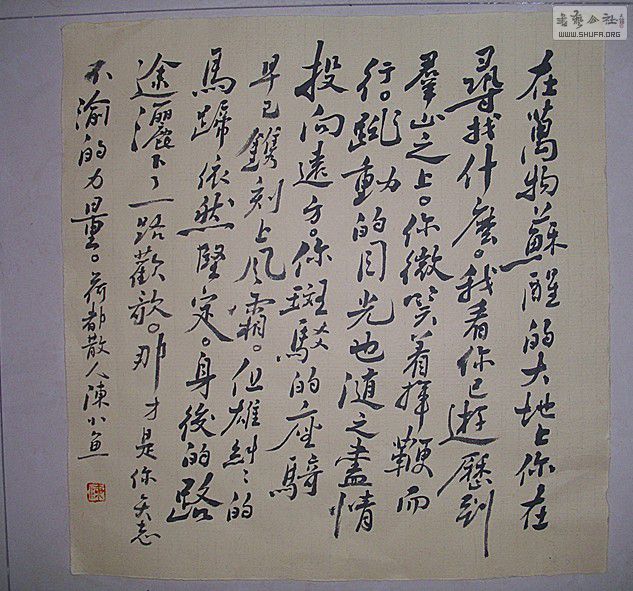 在萬物蘇醒的大地上你在
尋找什麽。我看你已遊歷到
羣山之上。你微笑着揮鞭而
行。跳動的目光也随之盡情
投向遠方。你斑駁的座騎
早已鐫刻上风霜。但雄糾糾的
馬蹄依然堅定。身後的路
途灑下了一路歡歌。那才是你矢志
不渝的力量。荷都散人陳小魚
書藝公社
WWW.SHUFA.ORG